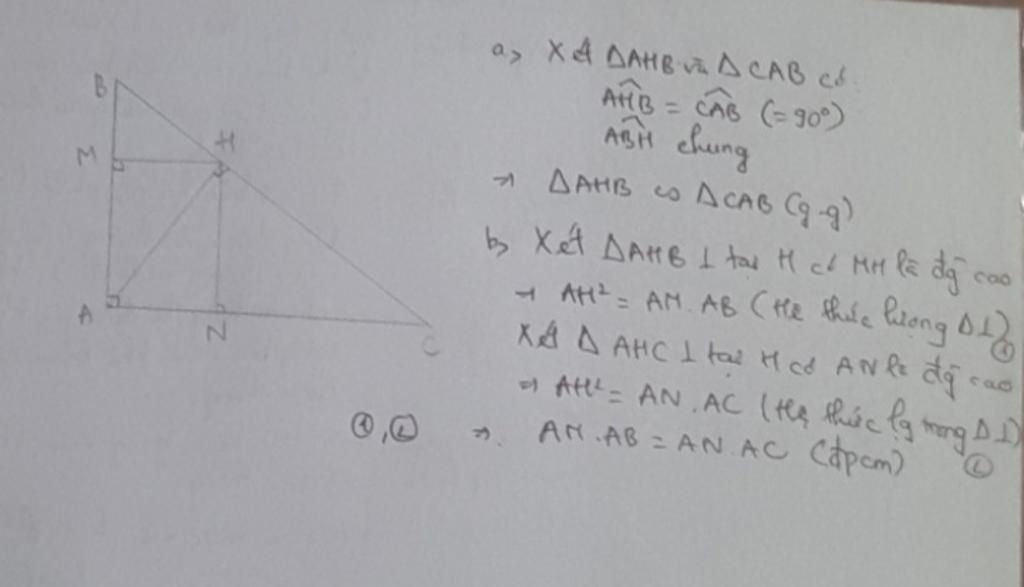 B
M
H
A
N
C
a, Xét ΔAHB và ΔCAB có
AHB = CAB (=90°)
ABH chung
→ ΔAHB ∽ ΔCAB (g-g)
b, Xét ΔAHB ⊥ tại H có MH là đg̃ cao
→ AH² = AM.AB (Hệ thức lượng Δ⊥) ①
Xét Δ AHC ⊥ tại H có AN là đg̃ cao
⇒ AH² = AN.AC (Hệ thức lg trong Δ⊥) ②
①,② ⇒ AM.AB = AN.AC (đpcm)